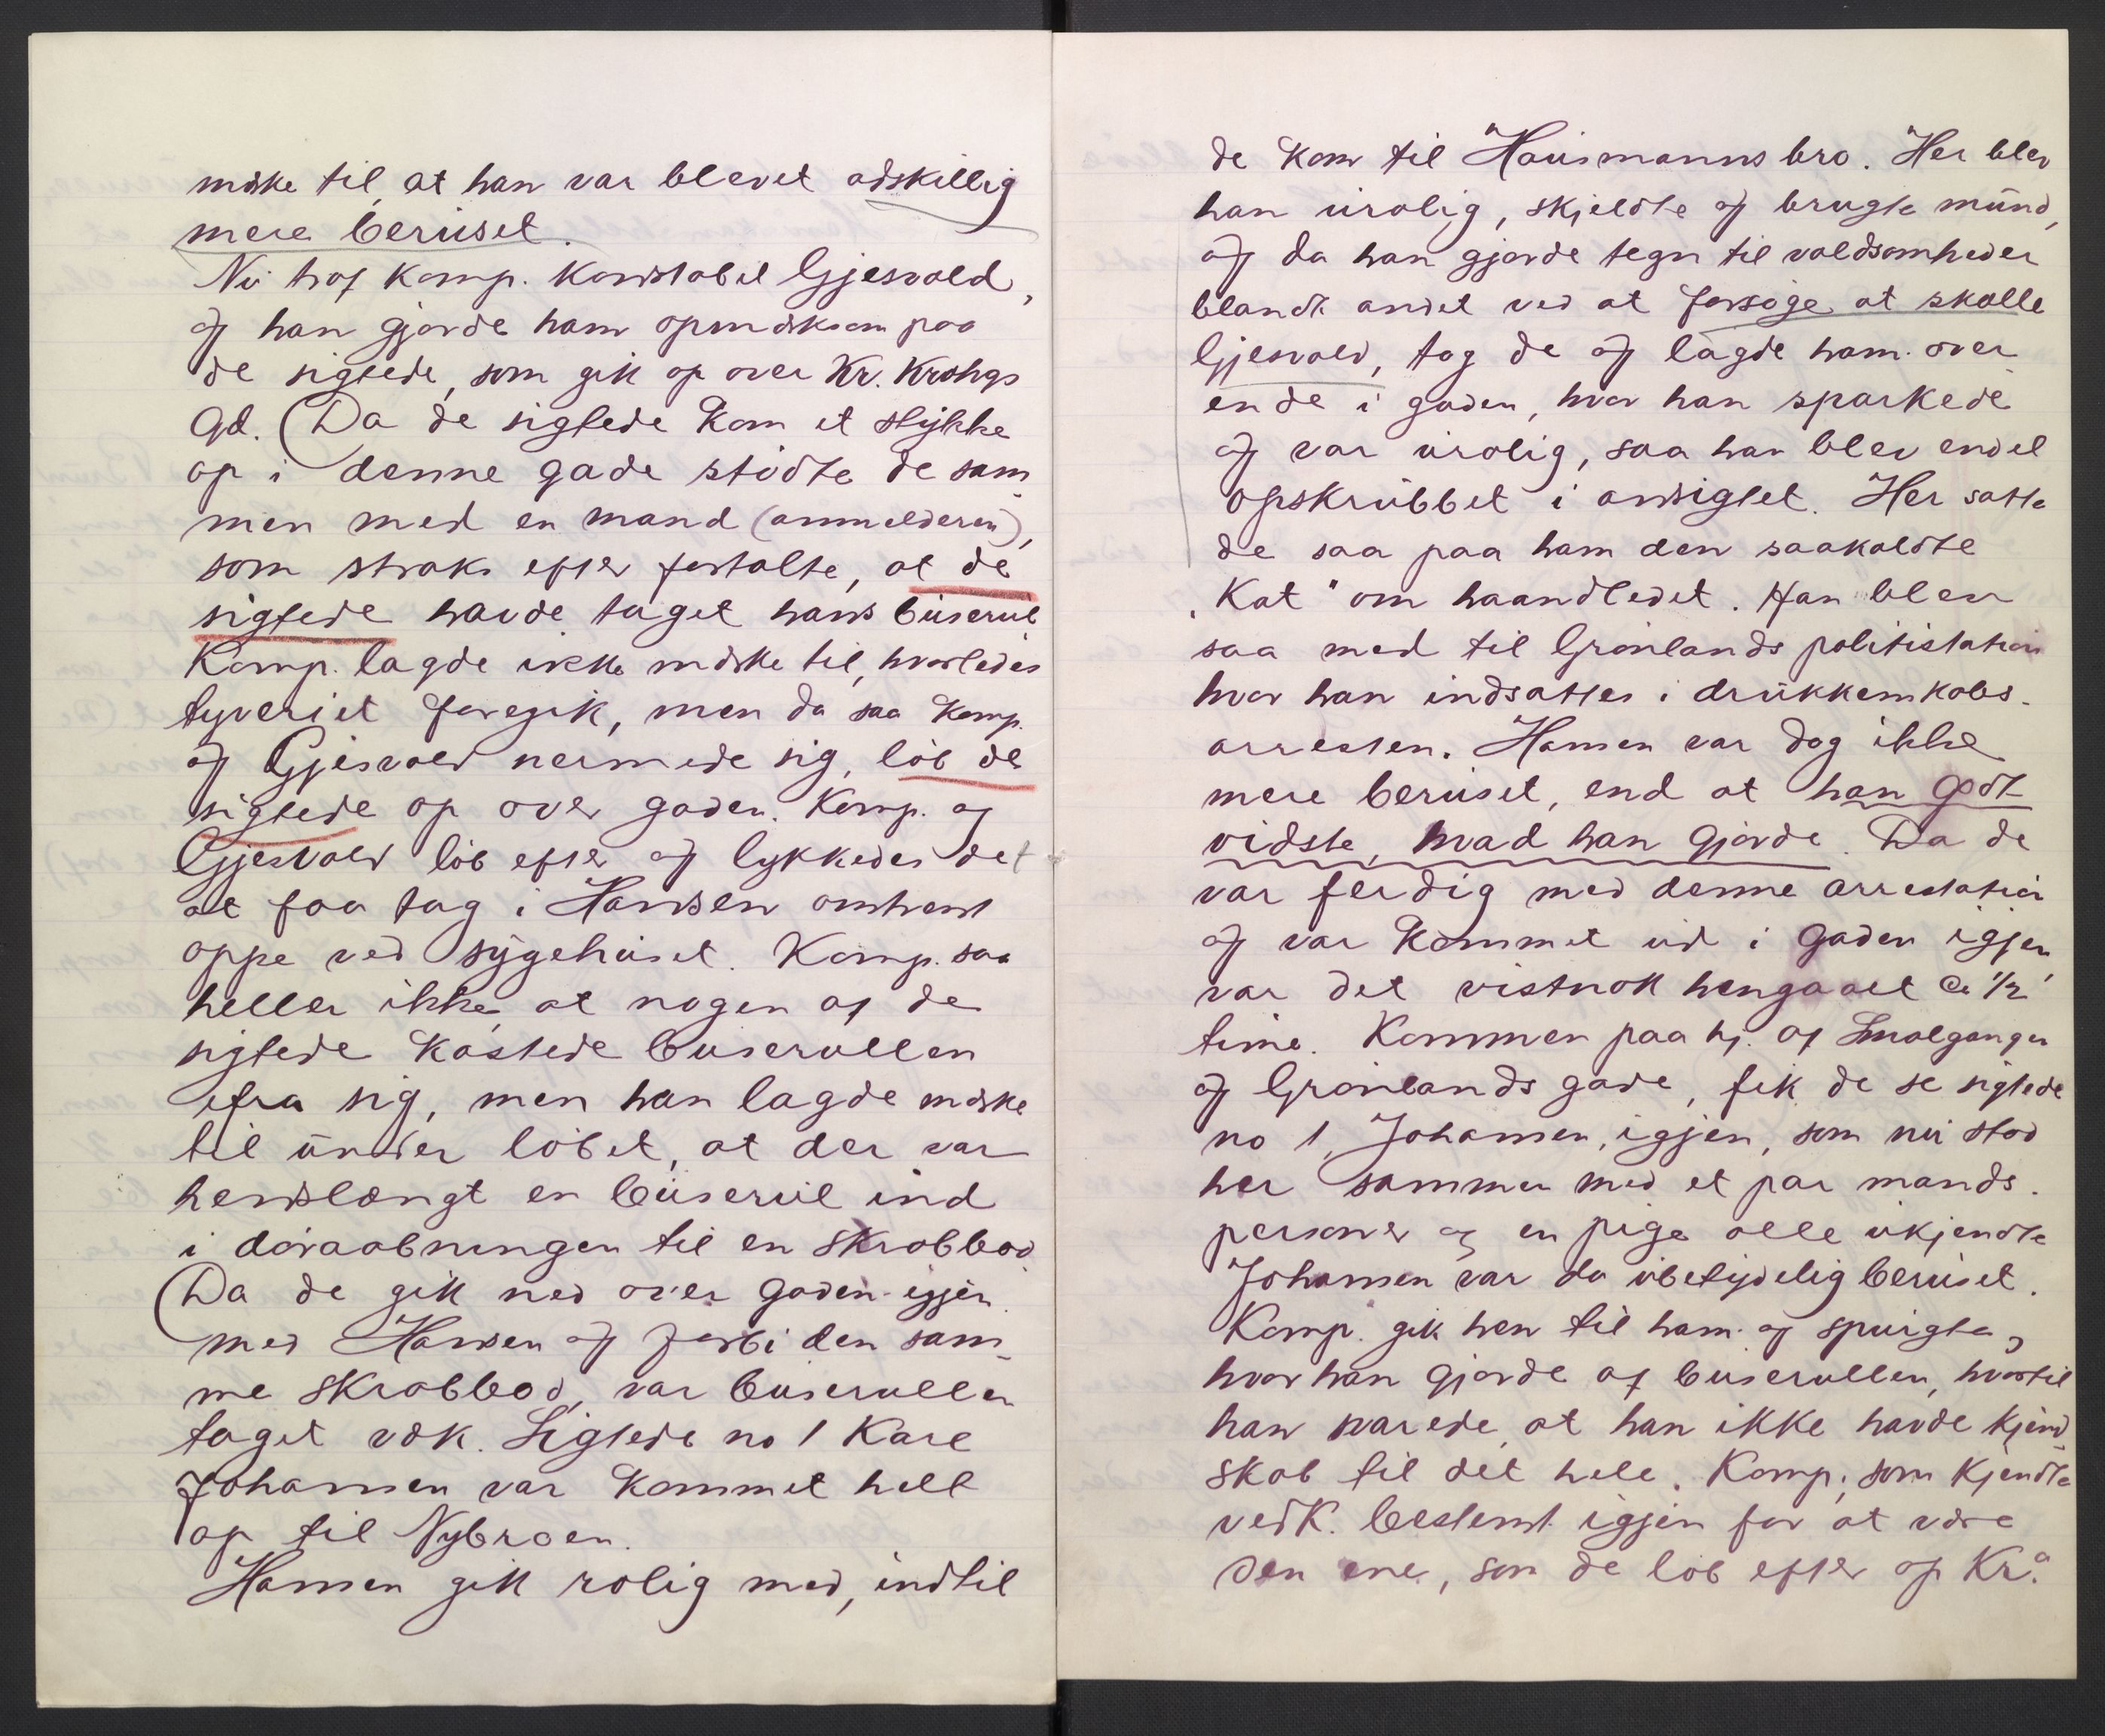 mærke til, at han var blevet adskillig
mere beruset.
Nu traf Komp. Konstabel Gjesvold,
og han gjorde ham opmærksom paa
de sigtede, som gik op over Kr. Krohgs
Gd. (Da de sigtede kom et stykke
op i denne gade stødte de sam
men med en mand (anmelderen),
som straks efter fortalte, at de
sigtede havde taget hans buserul
Komp. lagde ikke mærke til, hvorledes
tyveriet foregik, men da saa Komp.
og Gjesvold nermede sig, løb de
sigtede op over gaden. Komp. og
Gjesvold løb efter og lykkedes det
at faa tag i Hansen omtrent
oppe ved sygehuset. Komp. saa
heller ikke, at nogen af de
sigtede kastede buserullen
ifra sig, men han lagde mærke
til under løbet, at der var
henslængt en buserul ind
i døraabningen til en skrabbod
(Da de gik ned over gaden igjen
med Hansen og forbi den sam_
me skrabbod, var buserullen
taget væk. Sigtede no 1 Karl
Johansen var kommet helt
op til Nybroen.
Hansen gik rolig med, indtil
de kom til Hausmanns bro. Her blev
han urolig, skjeldte og brugte mund,
og da han gjorde tegn til voldsomheder
blandt andet ved at forsøge at skalle
Gjesvold, tog de og lagde ham over
ende i gaden, hvor han sparkede
og var urolig, saa han blev endel
opskrubbet i ansigtet. Her satte
de saa paa ham den saakaldte
"Kat" om haandledet. Han blev
saa med til Grønlands politistation
hvor han indsattes i drukkenskabs-
arresten. Hansen var dog ikke
mere beruset, end at han godt
vidste, hvad han gjorde. Da de
var ferdig med denne arrestation
og var kommet ud i gaden igjen,
var det vistnok hengaaet Ca 1/2
time. Kommen paa hj. af Smalgangen
og Grønlands gade, fik de se sigtede
no 1, Johansen, igjen, som nu stod
her sammen med et par mands-
personer og en pige alle ukjendte
Johansen var da ubetydelig beruset.
Komp. gik hen til ham og spurgte,
hvor han gjorde af buserullen, hvortil
han svarede, at han ikke havde kjend
skab til det hele. Komp., som kjendte
vedk. bestemt igjen for at være
den ene, som de løb efter op Kr.